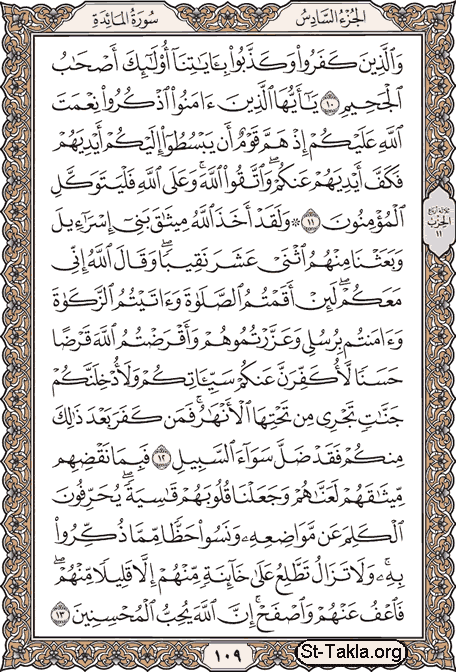 الجزء السادس
سورة المائدة
وَالَّذِينَ كَفَرُوا وَكَذَّبُوا بِـَٔايَـٰتِنَآ أُو۟لَـٰٓئِكَ أَصْحَـٰبُ
الْجَحِيمِ ١٠ يَـٰٓأَيُّهَا الَّذِينَ ءَامَنُوا اذْكُرُوا نِعْمَتَ
اللَّهِ عَلَيْكُمْ إِذْ هَمَّ قَوْمٌ أَن يَبْسُطُوٓا إِلَيْكُمْ أَيْدِيَهُمْ
فَكَفَّ أَيْدِيَهُمْ عَنكُمْ ۖ وَاتَّقُوا اللَّهَ ۚ وَعَلَى اللَّهِ فَلْيَتَوَكَّلِ
الْمُؤْمِنُونَ ١١ ۞ وَلَقَدْ أَخَذَ اللَّهُ مِيثَـٰقَ بَنِىٓ إِسْرَٰٓءِيلَ
وَبَعَثْنَا مِنْهُمُ اثْنَىْ عَشَرَ نَقِيبًا ۖ وَقَالَ اللَّهُ إِنِّى
مَعَكُمْ ۖ لَئِنْ أَقَمْتُمُ الصَّلَوٰةَ وَءَاتَيْتُمُ الزَّكَوٰةَ
وَءَامَنتُم بِرُسُلِى وَعَزَّرْتُمُوهُمْ وَأَقْرَضْتُمُ اللَّهَ قَرْضًا
حَسَنًا لَّأُكَفِّرَنَّ عَنكُمْ سَيِّـَٔاتِكُمْ وَلَأُدْخِلَنَّكُمْ
جَنَّـٰتٍ تَجْرِى مِن تَحْتِهَا الْأَنْهَـٰرُ ۚ فَمَن كَفَرَ بَعْدَ ذَٰلِكَ
مِنكُمْ فَقَدْ ضَلَّ سَوَآءَ السَّبِيلِ ١٢ فَبِمَا نَقْضِهِم
مِّيثَـٰقَهُمْ لَعَنَّـٰهُمْ وَجَعَلْنَا قُلُوبَهُمْ قَـٰسِيَةً ۖ يُحَرِّفُونَ
الْكَلِمَ عَن مَّوَاضِعِهِۦ ۙ وَنَسُوا حَظًّا مِّمَّا ذُكِّرُوا
بِهِۦ ۚ وَلَا تَزَالُ تَطَّلِعُ عَلَىٰ خَآئِنَةٍ مِّنْهُمْ إِلَّا قَلِيلًا مِّنْهُمْ ۖ
فَاعْفُ عَنْهُمْ وَاصْفَحْ ۚ إِنَّ اللَّهَ يُحِبُّ الْمُحْسِنِينَ ١٣
الحزب
١١
١٠٩
St-Takla.org